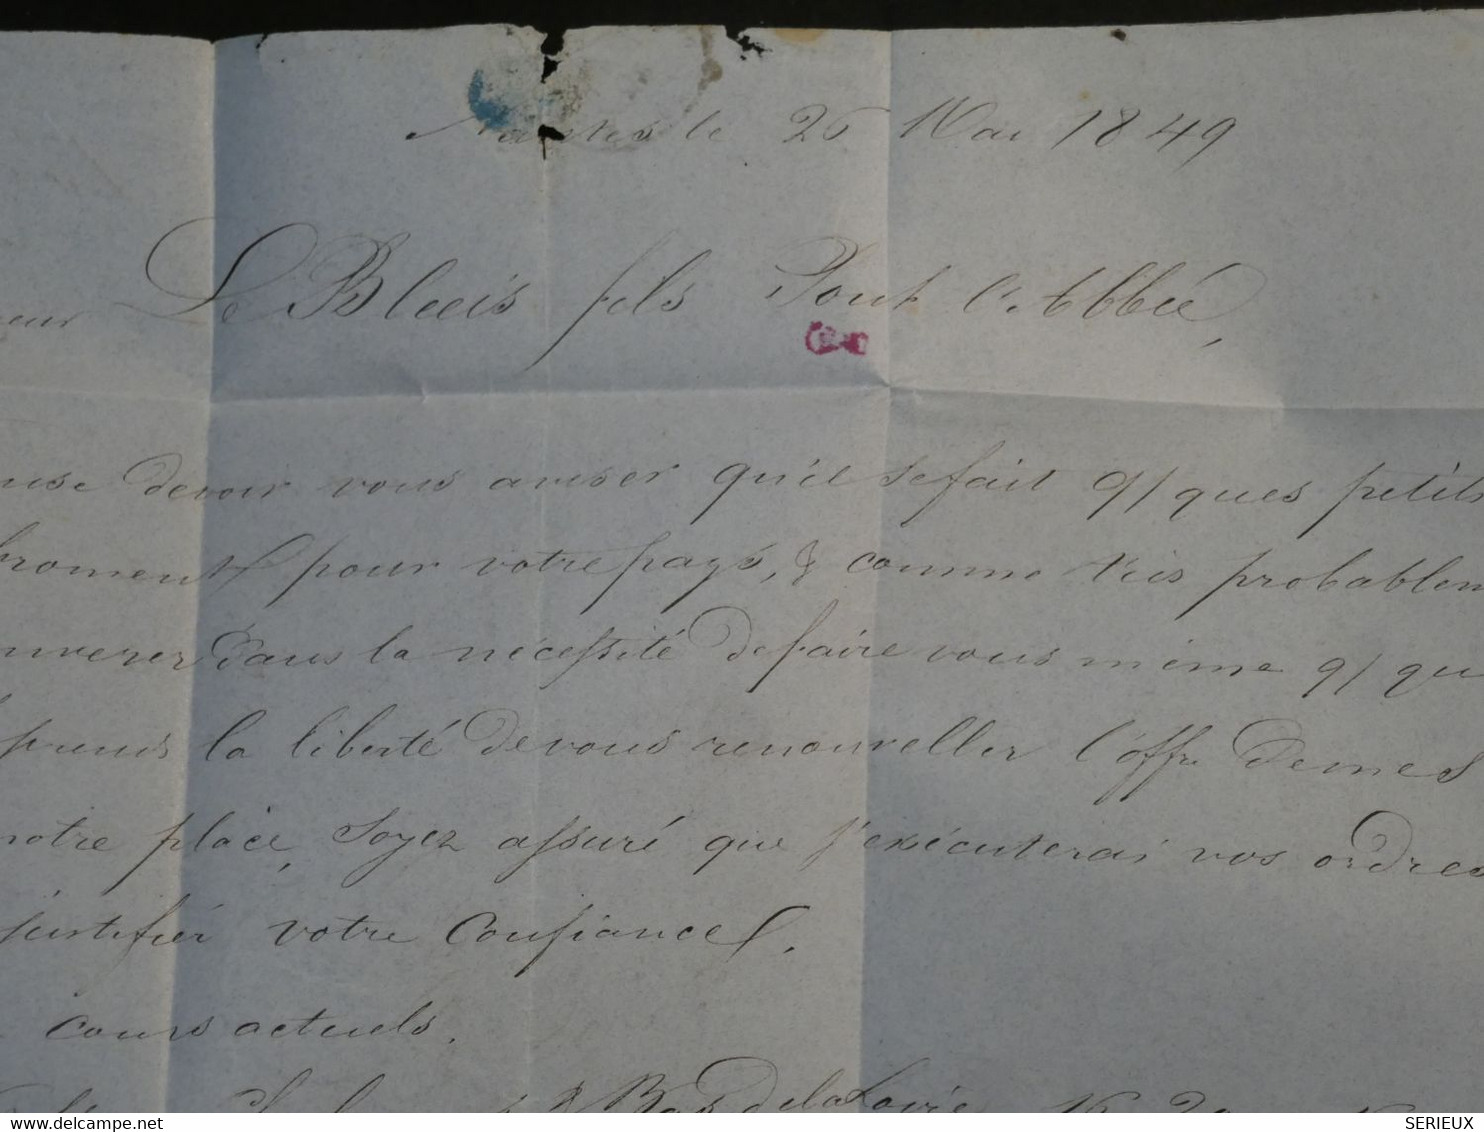 Nantes le 26 Mai 1849
eur Le Bleis fils Pont l'Abbé,
nse devoir vous aviser qu'il se fait q/ques petits
froment pour votre pays, & comme très probablem
ouverez dans la nécessité de faire vous même q/que
prends la liberté de vous renouveller l'offre de mes
notre place, Soyez assuré que j'exécuterai vos ordres
justifier votre Confiance.
cours actuels.
Bas de la Loire
delcampe.net
SERIEUX